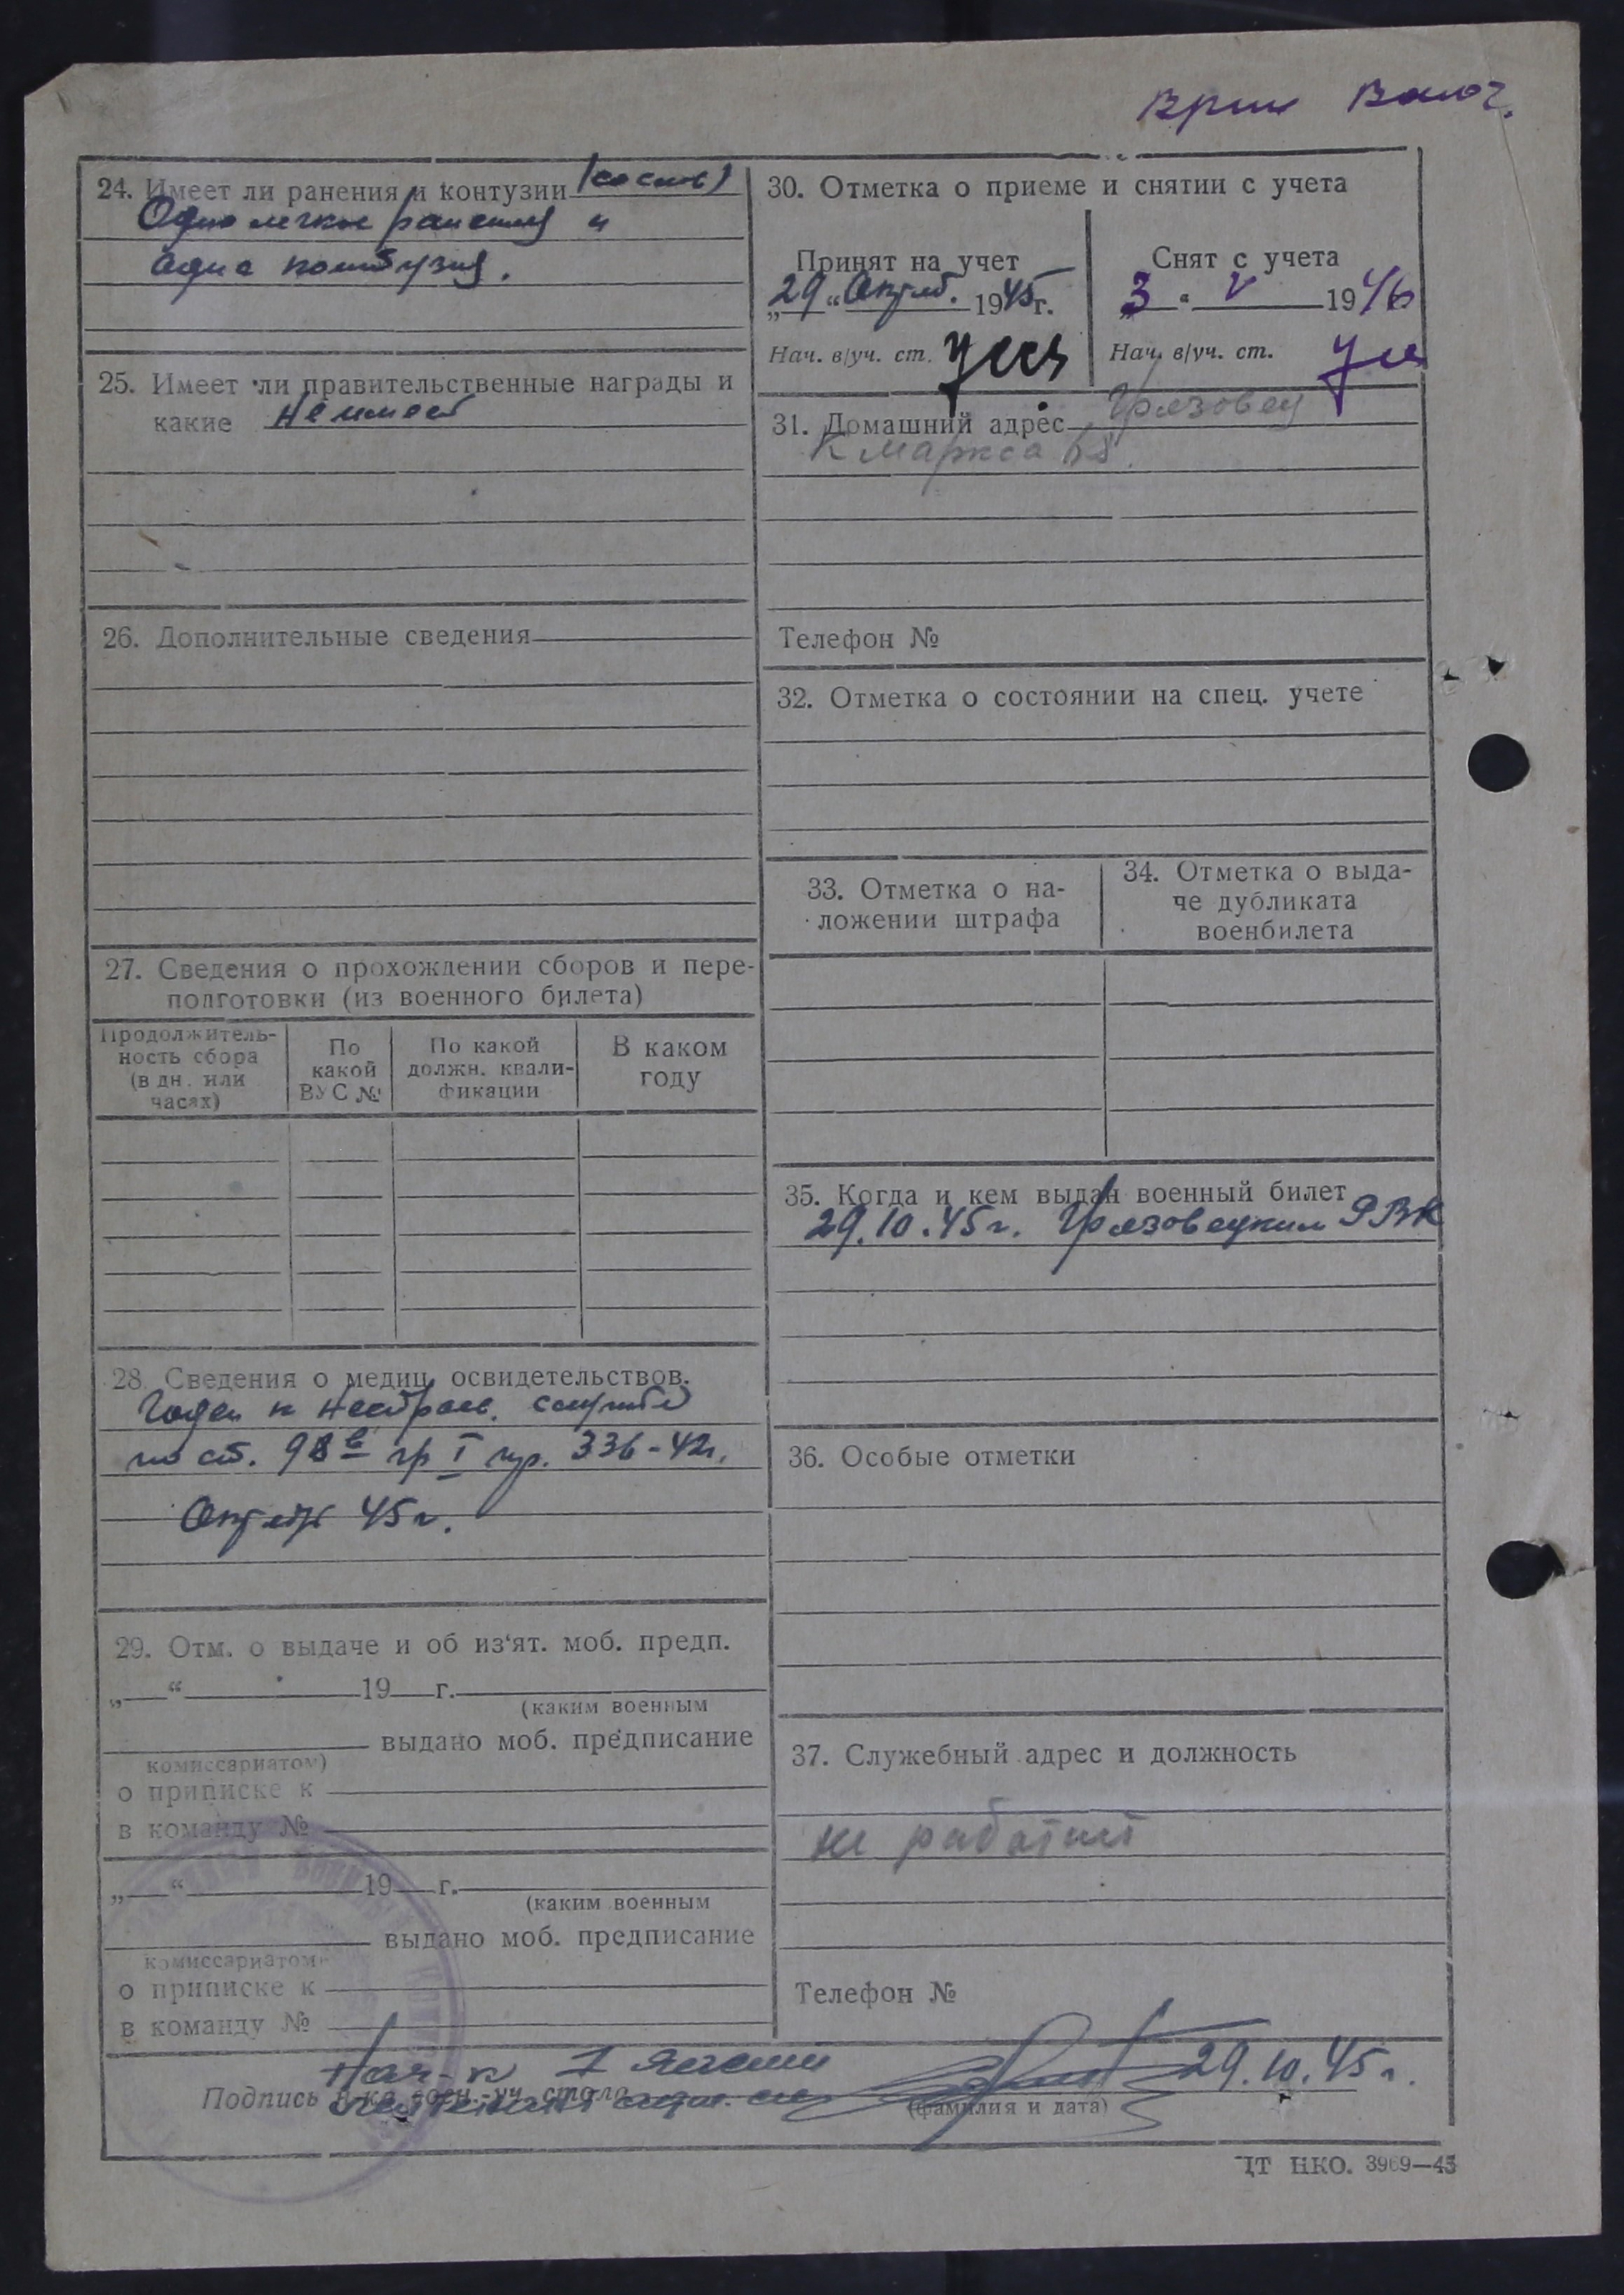 24. Имеет ли ранения и контузии (со слов)
Одно легкое ранение и
одна контузия.
25. Имеет ли правительственные награды и
какие не имеет
26. Дополнительные сведения
27. Сведения о прохождении сборов и пере-
подготовки (из военного билета)
Продолжитель-
ность сбора
(в дн. или
часах)
По
какой
ВУС №
По какой
должн. квали-
фикации
В каком
году
28. Сведения о медиц. освидетельствов.
Годен к нестроев. службе
по ст. 98в гр I пр. 336-42г.
Октябрь 45 г.
29. Отм. о выдаче и об из‘ят. моб. предп.
„ “ 19 г.
(каким военным
выдано моб. предписание
комиссариатом)
о приписке к
в команду №
„ “ 19 г.
(каким военным
выдано моб. предписание
комиссариатом)
о приписке к
в команду №
30. Отметка о приеме и снятии с учета
Принят на учет
„29“ Октяб. 1945 г.
Нач. в/уч. ст.
Снят с учета
„3 “ V 1946
Нач. в/уч. ст.
31. Домашний адрес Грязовец
К Маркса 68.
Телефон №
32. Отметка о состоянии на спец. учете
33. Отметка о на-
ложении штрафа
34. Отметка о выда-
че дубликата
военбилета
35. Когда и кем выдан военный билет
29.10.45 г. Грязовецким РВК
36. Особые отметки
37. Служебный адрес и должность
не работает
Телефон №
Нач-к 1 части
Подпись н-ка воен.-уч. стола 29.10.45 г.
(фамилия и дата)
ЦТ НКО. 3969—45